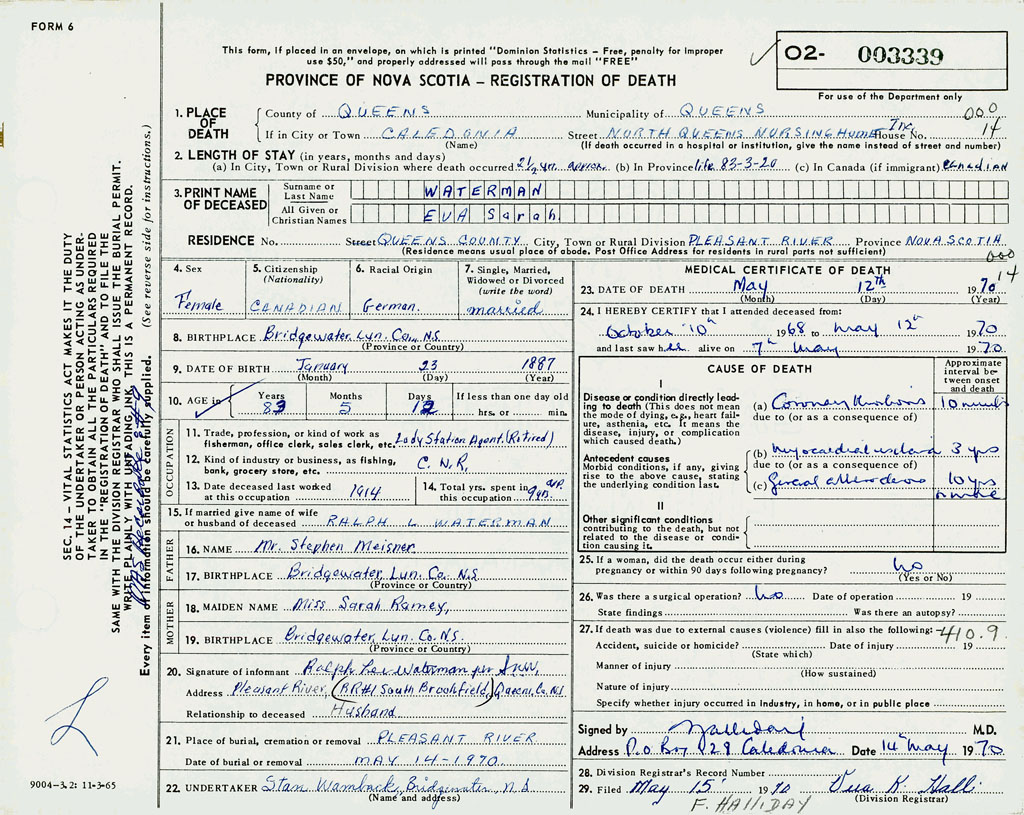 FORM 6
This form, if placed in an envelope, on which is printed "Dominion Statistics – Free, penalty for improper
use $50," and properly addressed will pass through the mail "FREE"
O2- 003339
For use of the Department only
PROVINCE OF NOVA SCOTIA – REGISTRATION OF DEATH
1. PLACE OF DEATH County of QUEENS Municipality of QUEENS 000
If in City or Town CALEDONIA Street NORTH QUEENS NURSING HOME Inc House No. 14
(Name) (If death occurred in a hospital or institution, give the name instead of street and number)
2. LENGTH OF STAY (in years, months and days)
(a) In City, Town or Rural Division where death occurred 2½ yr. approx. (b) In Province life 83-3-20 (c) In Canada (if immigrant) CANADIAN
3. PRINT NAME OF DECEASED Surname or Last Name WATERMAN
All Given or Christian Names EVA Sarah
RESIDENCE No. Street QUEENS COUNTY City, Town or Rural Division PLEASANT RIVER Province NOVA SCOTIA
(Residence means usual place of abode. Post Office Address for residents in rural parts not sufficient) 000
14
4. Sex Female
5. Citizenship (Nationality) CANADIAN
6. Racial Origin German.
7. Single, Married, Widowed or Divorced (write the word) married
8. BIRTHPLACE Bridgewater Lun. Co., N.S
(Province or Country)
9. DATE OF BIRTH January 23 1887
(Month) (Day) (Year)
10. AGE in Years 83 Months 5 Days 12 If less than one day old hrs. or min.
OCCUPATION
11. Trade, profession, or kind of work as
fisherman, office clerk, sales clerk, etc. Lady Station Agent (Retired)
12. Kind of industry or business, as fishing,
bank, grocery store, etc. C. N. R.
13. Date deceased last worked at this occupation 1914
14. Total yrs. spent in this occupation 9 yrs.
15. If married give name of wife
or husband of deceased RALPH L WATERMAN
FATHER
16. NAME Mr. Stephen Meisner
17. BIRTHPLACE Bridgewater Lun. Co. N.S
(Province or Country)
MOTHER
18. MAIDEN NAME Miss Sarah Ramey,
19. BIRTHPLACE Bridgewater, Lun. Co. N.S.
(Province or Country)
20. Signature of informant Ralph Lee Waterman per
Address Pleasant River, (RR#1 South Brookfield) Queens Co. N.S
Relationship to deceased Husband
21. Place of burial, cremation or removal PLEASANT RIVER
Date of burial or removal MAY 14-1970
22. UNDERTAKER Stan Wamback, Bridgewater, N.S
(Name and address)
MEDICAL CERTIFICATE OF DEATH
23. DATE OF DEATH May 12th 1970
(Month) (Day) (Year)
24. I HEREBY CERTIFY that I attended deceased from:
October 10th 1968 to May 12th 1970
and last saw her alive on 7th May 1970
CAUSE OF DEATH
Approximate interval between onset and death
I
Disease or condition directly leading
to death (This does not mean
the mode of dying, e.g., heart failure,
asthenia, etc. It means the
disease, injury, or complication
which caused death.)
(a) Coronary thrombosis 10 minutes
due to (or as a consequence of)
Antecedent causes
Morbid conditions, if any, giving
rise to the above cause, stating
the underlying condition last.
(b) Myocardial 3 yrs
due to (or as a consequence of)
(c) General 10 yrs or more
II
Other significant conditions
contributing to the death, but not
related to the disease or condition
causing it.
25. If a woman, did the death occur either during
pregnancy or within 90 days following pregnancy? No
(Yes or No)
26. Was there a surgical operation? No Date of operation 19
State findings Was there an autopsy?
27. If death was due to external causes (violence) fill in also the following: 410.9
Accident, suicide or homicide? Date of injury 19
(State which)
Manner of injury
(How sustained)
Nature of injury
Specify whether injury occurred in industry, in home, or in public place
Signed by Halliday M.D.
Address P.O Box 128 Caledonia Date 14th May 1970
28. Division Registrar's Record Number
29. Filed May 15 1970
(Division Registrar)
F. HALLIDAY
SEC. 14 – VITAL STATISTICS ACT MAKES IT THE DUTY
OF THE UNDERTAKER OR PERSON ACTING AS UNDER-
TAKER TO OBTAIN ALL THE PARTICULARS REQUIRED
IN THE "REGISTRATION OF DEATH" AND TO FILE THE
SAME WITH THE DIVISION REGISTRAR WHO SHALL ISSUE THE BURIAL PERMIT.
WRITE PLAINLY WITH UNFADING INK. THIS IS A PERMANENT RECORD.
Every item of information should be carefully supplied. (See reverse side for instructions.)
9004–3.2: 11-3-65